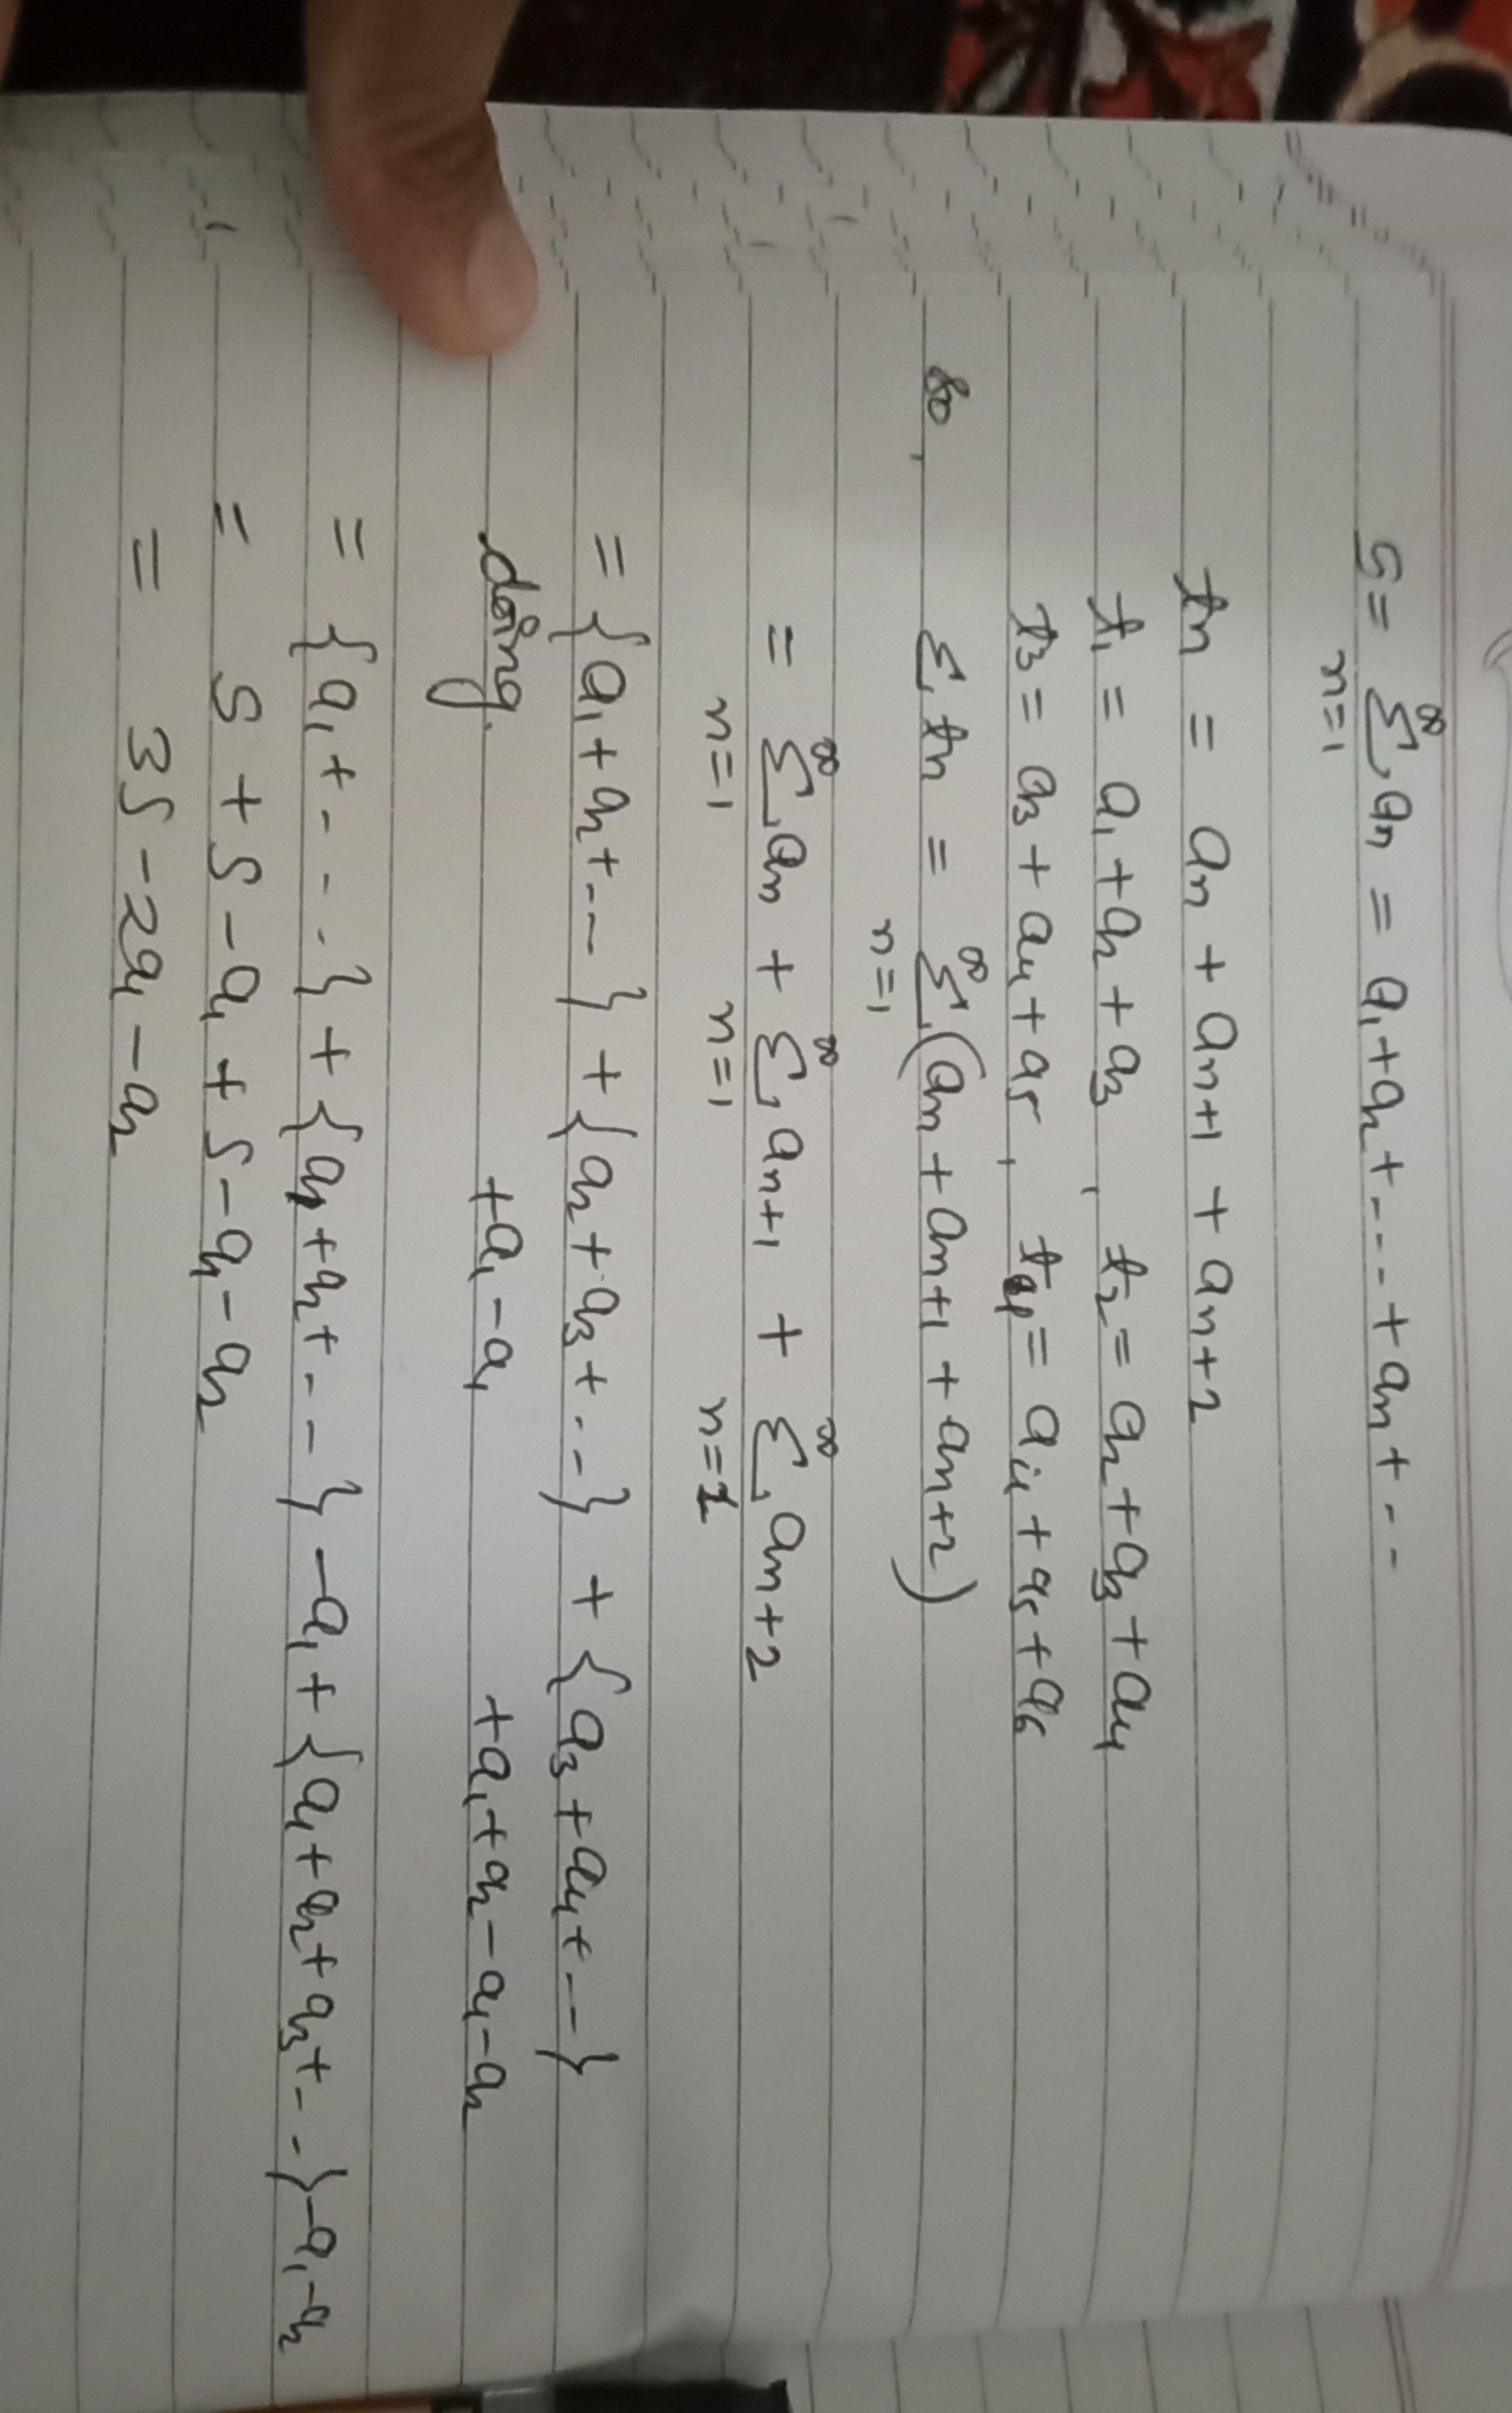 S = ∞∑n=1 an = a1 + a2 + ---- + an + --
tn = an + an+1 + an+2
t1 = a1 + a2 + a3 , t2 = a2 + a3 + a4
t3 = a3 + a4 + a5 , t4 = a4 + a5 + a6
so, ∑ tn = ∞∑n=1 (an + an+1 + an+2)
= ∞∑n=1 an + ∞∑n=1 an+1 + ∞∑n=1 an+2
= {a1 + a2 + ---} + {a2 + a3 + ---} + {a3 + a4 + ---}
doing. +a1 - a1 +a1 + a2 - a1 - a2
= {a1 + - - -} + {a1 + a2 + - -} - a1 + {a1 + a2 + a3 + - -} - a1 - a2
= S + S - a1 + S - a1 - a2
= 3S - 2a1 - a2